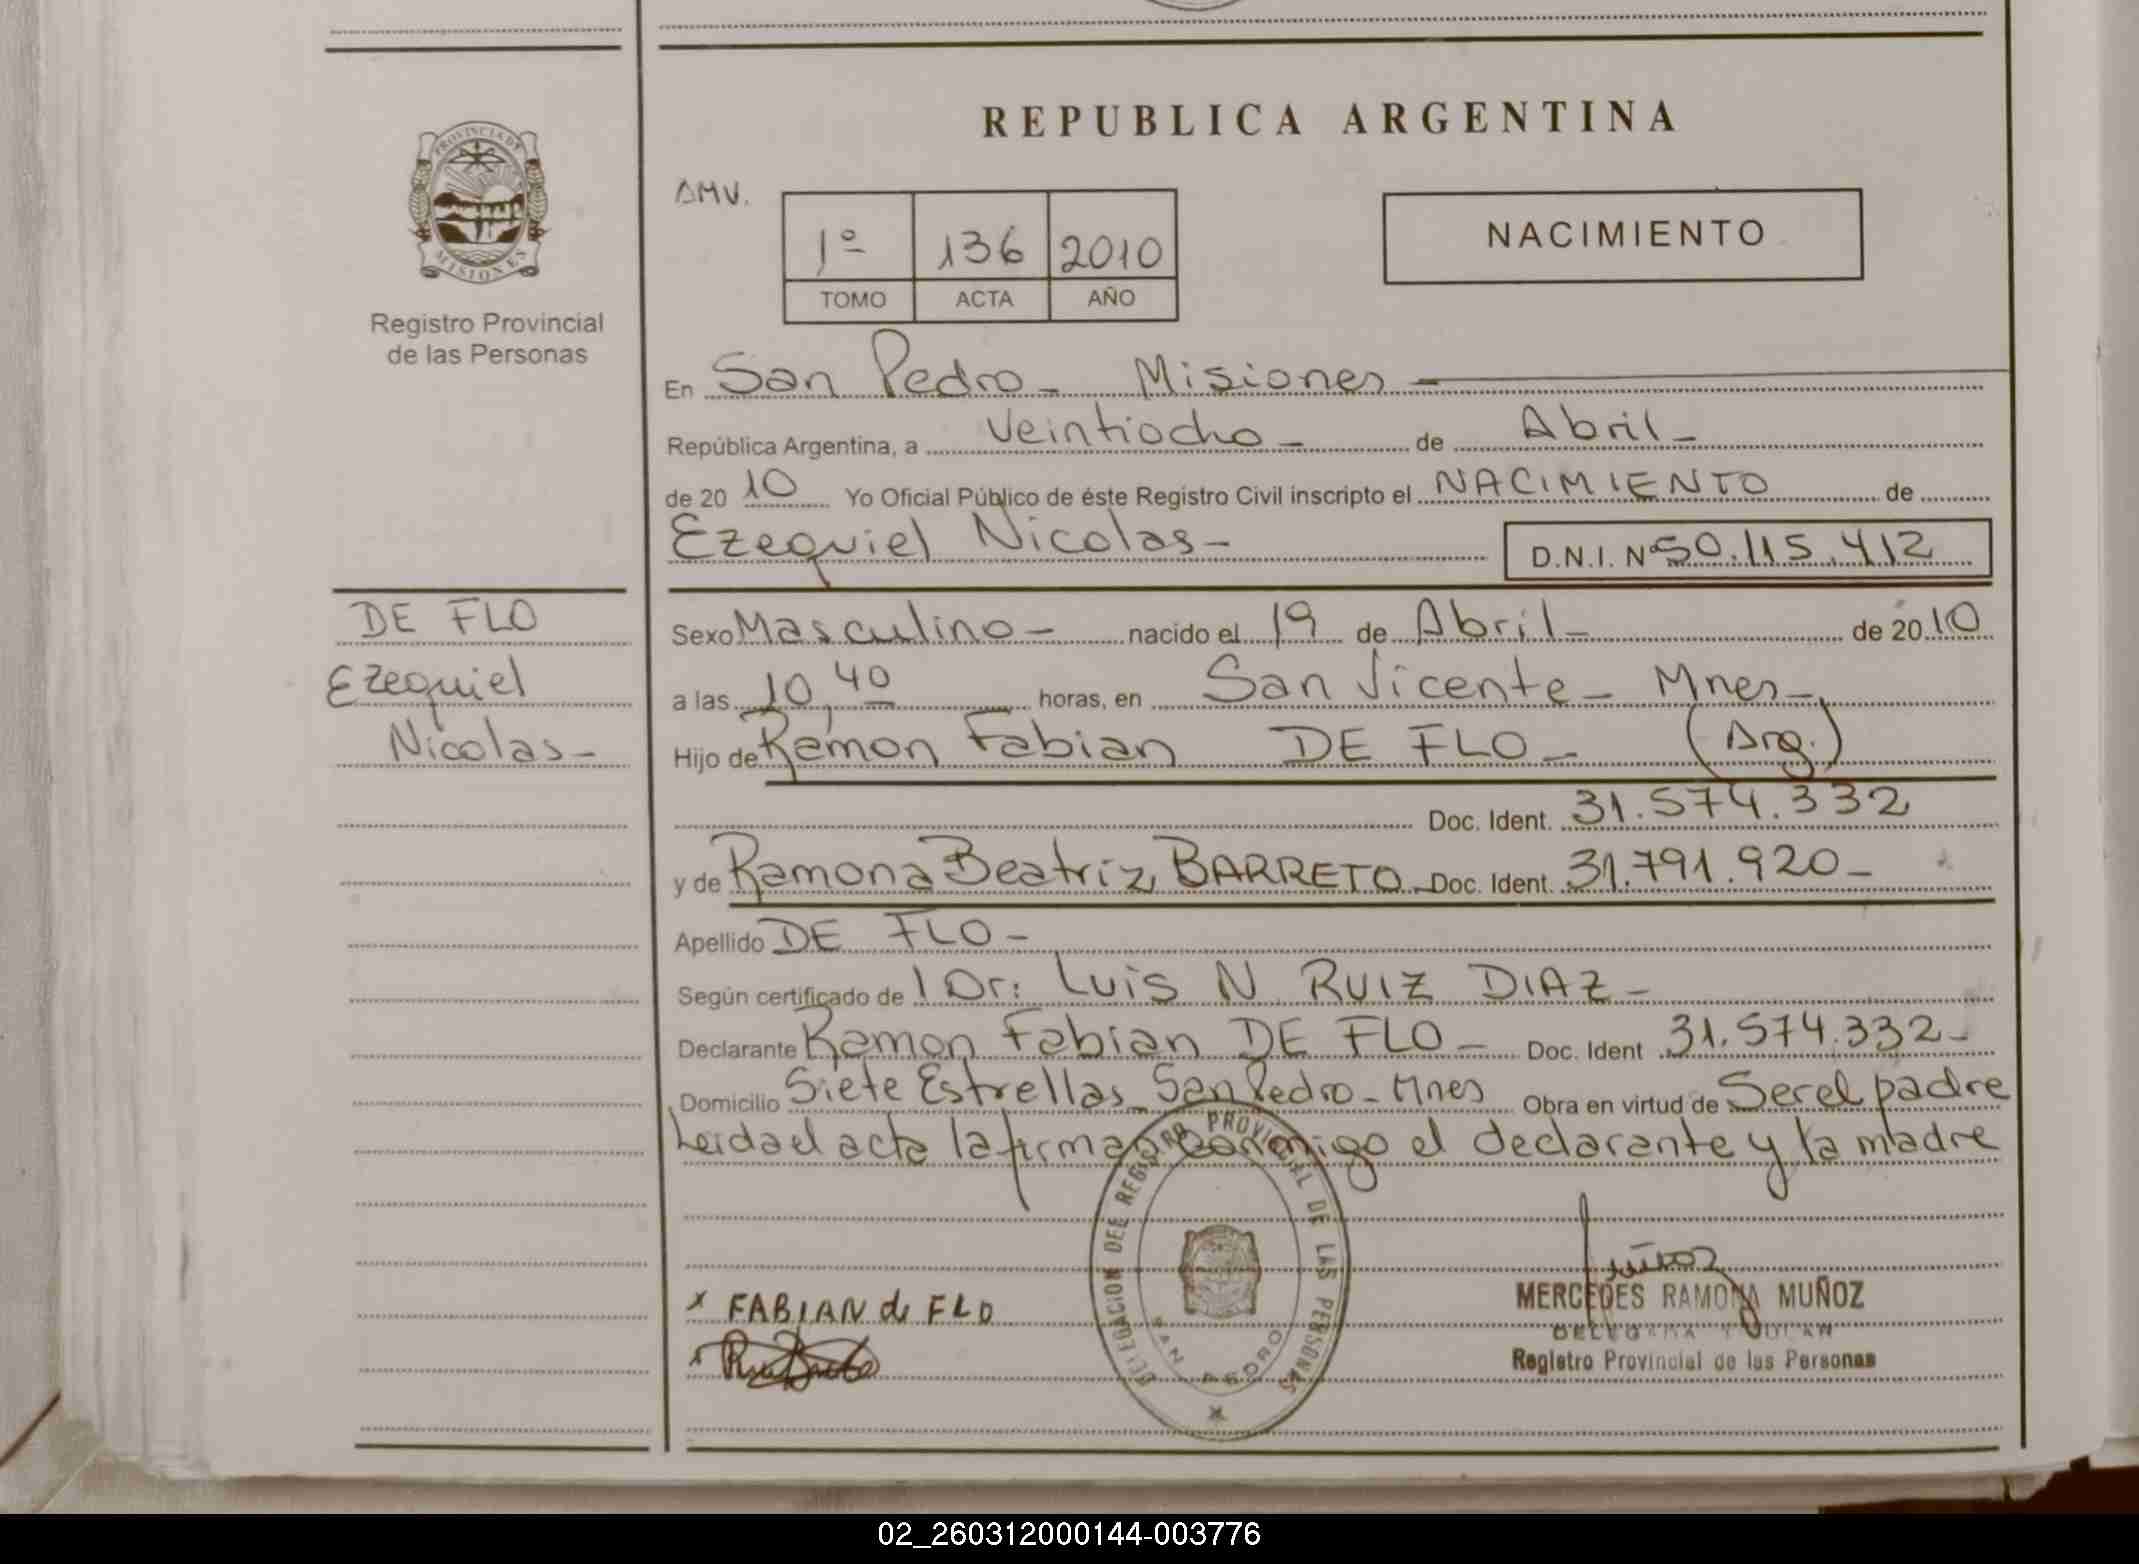 REPUBLICA ARGENTINA
PROVINCIA DE
MISIONES
Registro Provincial
de las Personas
AMV.
1º 136 2010
TOMO ACTA AÑO
NACIMIENTO
En San Pedro - Misiones -
República Argentina, a Veintiocho - de Abril -
de 20 10 Yo Oficial Público de éste Registro Civil inscripto el NACIMIENTO de
Ezequiel Nicolas - D.N.I. Nº 50.115.412
DE FLO
Ezequiel
Nicolas -
Sexo Masculino - nacido el 19 de Abril - de 20 10
a las 10,40 horas, en San Vicente - Mnes -
Hijo de Ramon Fabian DE FLO - (Arg.)
Doc. Ident. 31.574.332
y de Ramona Beatriz BARRETO - Doc. Ident. 31.791.920 -
Apellido DE FLO -
Según certificado de l Dr: Luis N RUIZ DIAZ -
Declarante Ramon Fabian DE FLO - Doc. Ident 31.574.332 -
Domicilio Siete Estrellas San Pedro - Mnes Obra en virtud de Ser el padre
Leida el acta la firman conmigo el declarante y la madre
DELEGACION DEL REGISTRO PROVINCIAL DE LAS PERSONAS
SAN PEDRO
x FABIAN de FLO
x
Muñoz
MERCEDES RAMONA MUÑOZ
DELEGADA TITULAR
Registro Provincial de las Personas
02_260312000144-003776